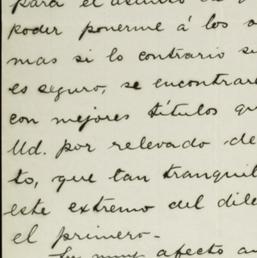 para el asunto de q
poder ponerme á los a
mas si lo contrario su
es seguro, se encontrare
con mejores títulos qu
Ud. por relevado de
to, que tan tranquil
este extremo del dile
el primero-
Su muy afecto am